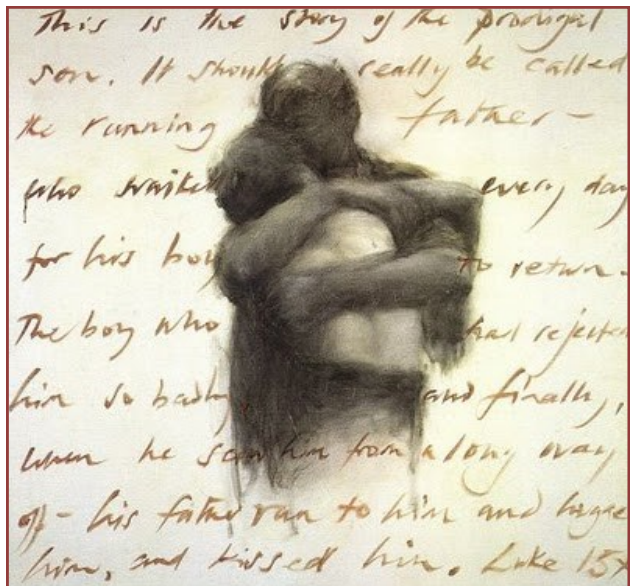 This is the story of the prodigal
son. It should really be called
the running father –
who waited every day
for his boy to return.
The boy who had rejected
him so badly, and finally,
when he saw him from a long way
off – his father ran to him and
him, and kissed him. Luke 15